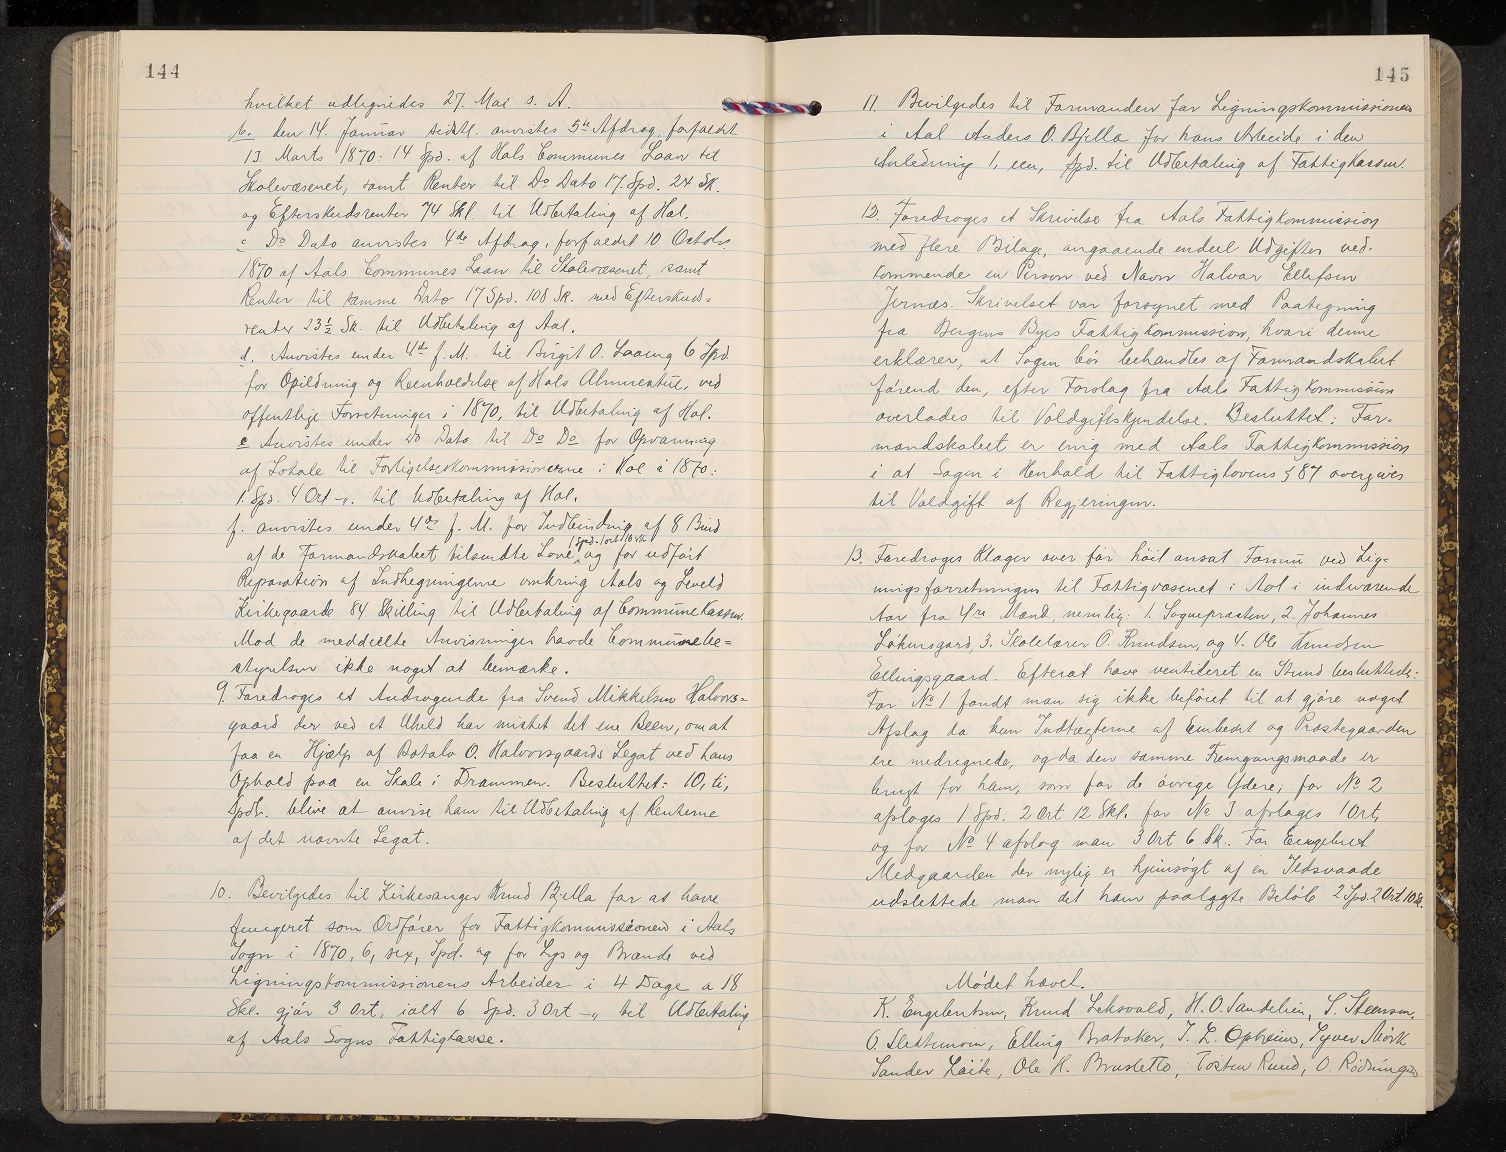 144
hvilket udlignedes 27. Mai s. A.
b. den 14. Januar sidstl. anvistes 5te Afdrag, forfaldet
13. Marts 1870: 14 Spd. af Hols Communes Laan til
Skolevæsenet, samt Renter til Do Dato 17. Spd. 24 Sk.
og Efterskudsrenter 74 Skl. til Udbetaling af Hol.
c Do Dato anvistes 4de Afdrag, forfaldet 10 Octobr.
1870 af Aals Communes Laan til Skolevæsenet, samt
Renter til samme Dato 17 Spd. 108 Sk. med Efterskuds=
renter 23½ Sk. til Udbetaling af Aal.
d. Anvistes under 4de f. M. til Birgit O. Laaeng 6 Spd
for Opildning og Reenholdelse af Hols Almuestue, ved
offentlige Forretninger i 1870, til Udbetaling af Hol.
e Anvistes under Do Dato til Do Do for Opvarming
af Lokale til Forligelseskommissionerne i Hol i 1870:
1 Spd. 4 Ort -„. til Udbetaling af Hol.
f. anvistes under 4de f. M. for Indbinding af 8 Bind
af de Formandskabet tilsendte Love 1 Spd. 1 ort 16 sk og for udført
Reparation af Indhegningerne omkring Aals og Leveld
Kirkegaarde 84 Skilling til Udbetaling af Communekassen.
Mod de meddeelte Anvisninger havde Communebe=
styrelsen ikke noget at bemærke.
9. Foredroges et Andragende fra Svend Mikkelsen Halvors=
gaard der ved et Uheld har mistet det ene Been, om at
faa en Hjælp af Botolv O. Halvorsgaards Legat ved hans
Ophold paa en Skole i Drammen. Besluttet: 10, ti,
Spdl. blive at anvise ham til Udbetaling af Renterne
af det nævnte Legat.
10. Bevilgedes til Kirkesanger Knud Bjella for at have
fungeret som Ordfører for Fattigkommissionen i Aals
Sogn i 1870, 6, sex, Spd. og for Lys og Brænde ved
Ligningskommissionens Arbeider i 4 Dage a 18
Skl. gjør 3 Ort, ialt 6 Spd. 3 Ort -„ til Udbetaling
af Aals Sogns Fattigkasse.
145
11. Bevilgedes til Formanden for Ligningskommissionen
i Aal Anders O. Bjella for hans Arbeide i den
Anledning 1, een, Spd. til Udbetaling af Fattigkassen.
12. Foredroges et Skrivelse fra Aals Fattigkommission
med flere Bilage, angaaende endeel Udgifter ved-
kommende en Person ved Navn Halvor Ellefsen
Jernæs. Skrivelset var forsynet med Paategning
fra Bergens Byes Fattigkommission, hvori denne
erklærer, at Sagen bør behandles af Formandskabet
førend den, efter Forslag fra Aals Fattigkommission
overlades til Voldgiftskjendelse. Besluttet: For-
mandskabet er enig med Aals Fattigkommission
i at Sagen i Henhold til Fattiglovens § 87 overgives
til Voldgift af Regjeringen.
13. Foredroges Klager over for høit ansat Formue ved Lig-
ningsforretningen til Fattigvæsenet i Aal i indværende
Aar fra 4re Mænd, nemlig: 1. Sognepræsten, 2. Johannes
Løkensgard, 3. Skolelærer O. Knudsen, og 4. Ole Amundsen
Ellingsgaard. Efterat have ventileret en Stund besluttedes:
For No 1 fandt man sig ikke beføiet til at gjøre noget
Afslag da kun Indtægterne af Embedet og Præstegaarden
ere medregnede, og da den samme Fremgangsmaade er
brugt for ham, som for de øvrige Ydere; for No 2
afslages 1 Spd. 2 Ort 12 Skl. for No 3 afslages 1 Ort,
og for No 4 afslog man 3 Ort 6 Sk. For Engebret
Medgaarden der nylig er hjemsøgt af en Ildsvaade
udslettede man det ham paalagte Beløb 2 Spd. 2 Ort 10 Sk.
Mødet hævet.
K. Engebretsen, Knud Leksvold, H. O. Sundelien, S. Steensen,
O. Slettemoen, Elling Brataker, T. L. Opheim, Syver Mørk
Sander Laite, Ole H. Brusletto, Tosten Ruud, O. Rødningen